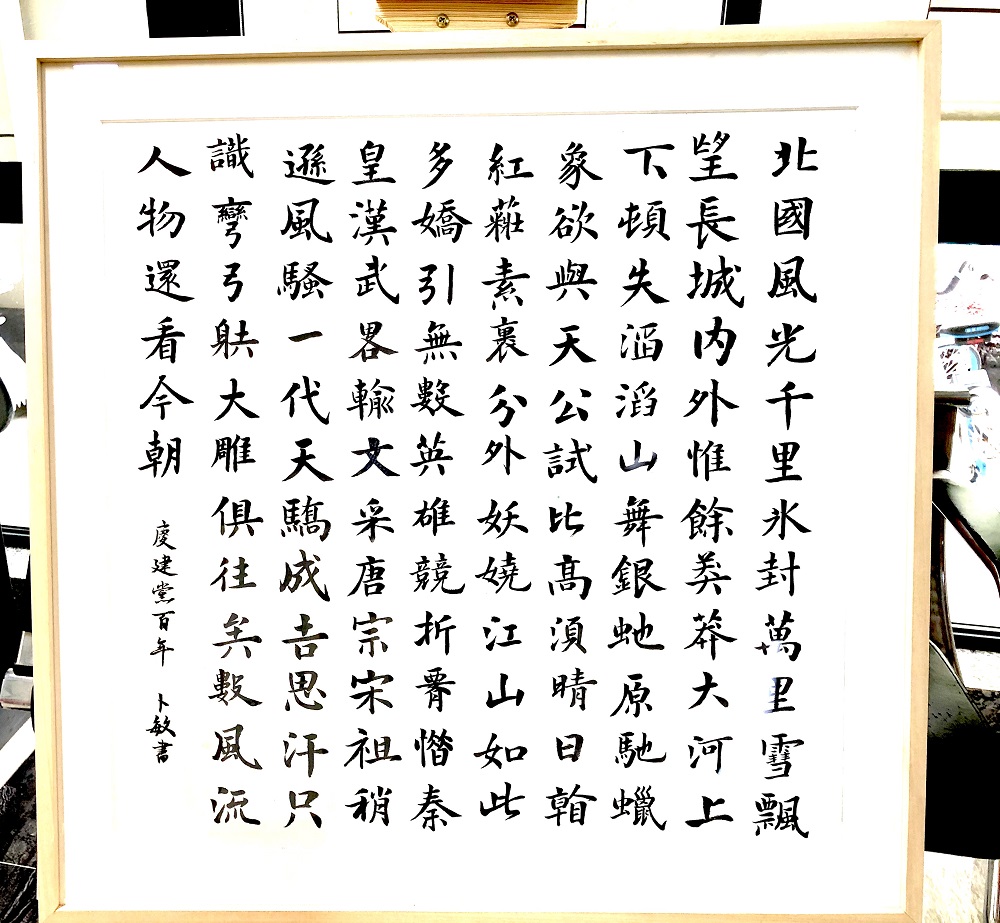 北國風光千里氷封萬里雪飄
望長城内外惟餘莽莽大河上
下頓失滔滔山舞銀虵原馳蠟
象欲與天公試比髙湏晴日看
紅粧素裹分外妖嬈江山如此
多嬌引無數英雄競折腰惜秦
皇漢武畧輸文采唐宗宋祖稍
遜風騷一代天驕成吉思汗只
識彎弓躲大雕俱往矣數風流
人物還看今朝
慶建黨百年 卜敏書